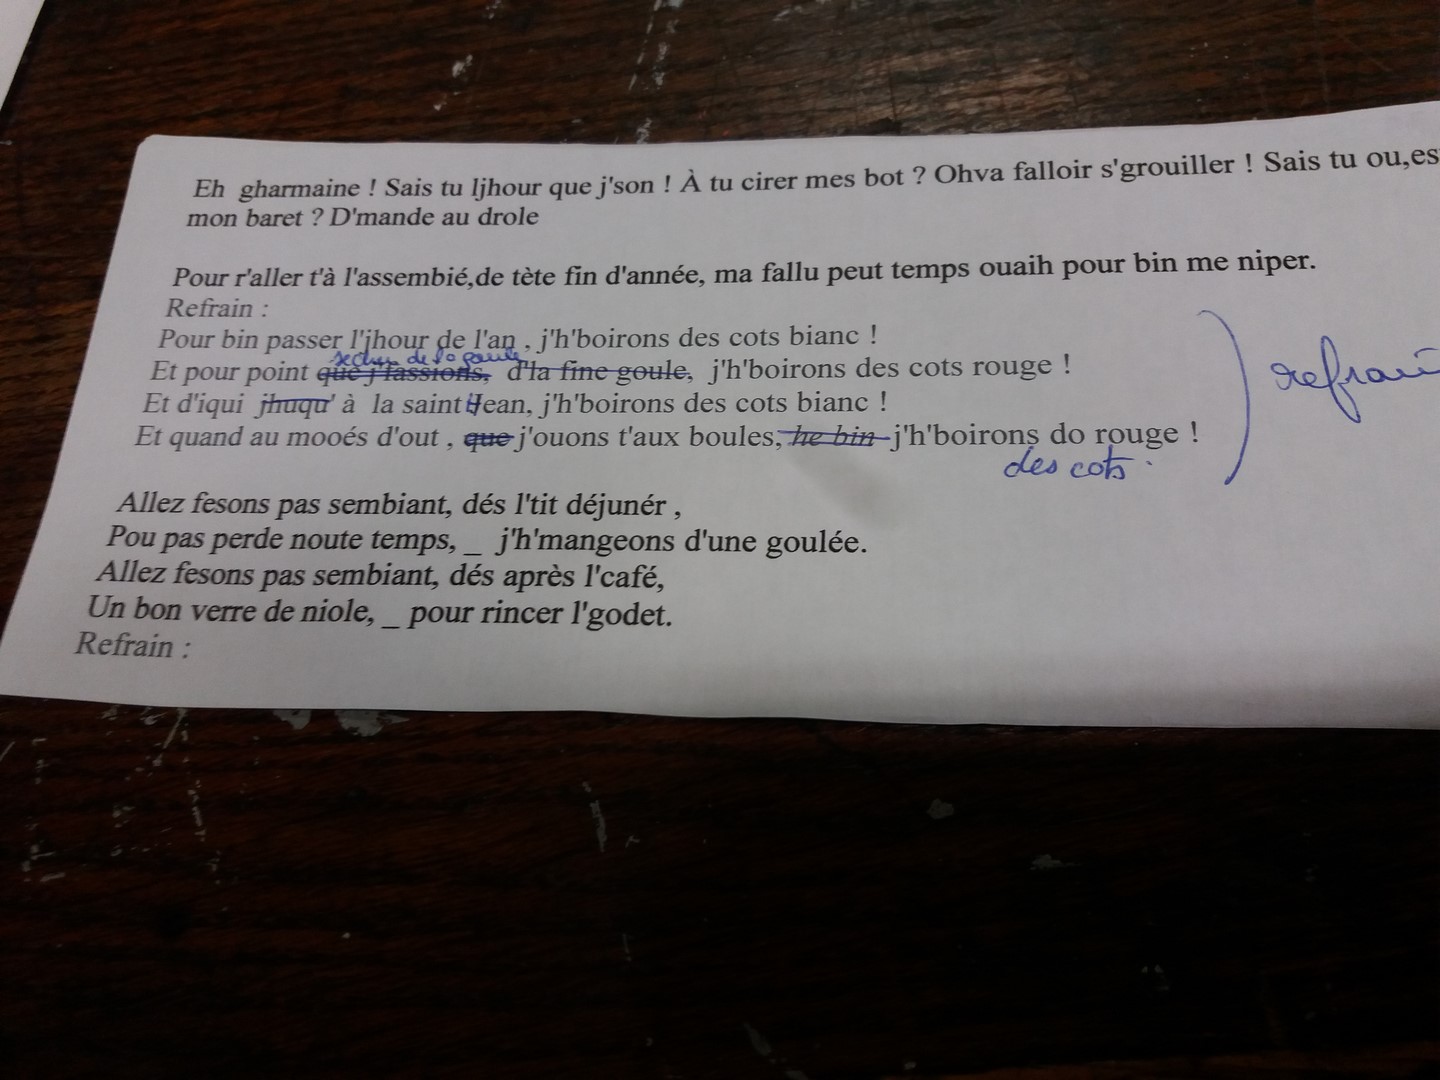 Eh gharmaine ! Sais tu ljhour que j'son ! À tu cirer mes bot ? Ohva falloir s'grouiller ! Sais tu ou,es
mon baret ? D'mande au drole
Pour r'aller t'à l'assembié,de tète fin d'année, ma fallu peut temps ouaih pour bin me niper.
Refrain :
Pour bin passer l'jhour de l'an , j'h'boirons des cots bianc !
secher de la goule
Et pour point que j'fassions, d'la fine goule, j'h'boirons des cots rouge !
Et d'iqui jhuqu' à la saint Jean, j'h'boirons des cots bianc !
Et quand au mooés d'out , que j'ouons t'aux boules, he bin j'h'boirons do rouge !
des cots
refrain
Allez fesons pas sembiant, dés l'tit déjunér ,
Pou pas perde noute temps, _ j'h'mangeons d'une goulée.
Allez fesons pas sembiant, dés après l'café,
Un bon verre de niole, _ pour rincer l'godet.
Refrain :